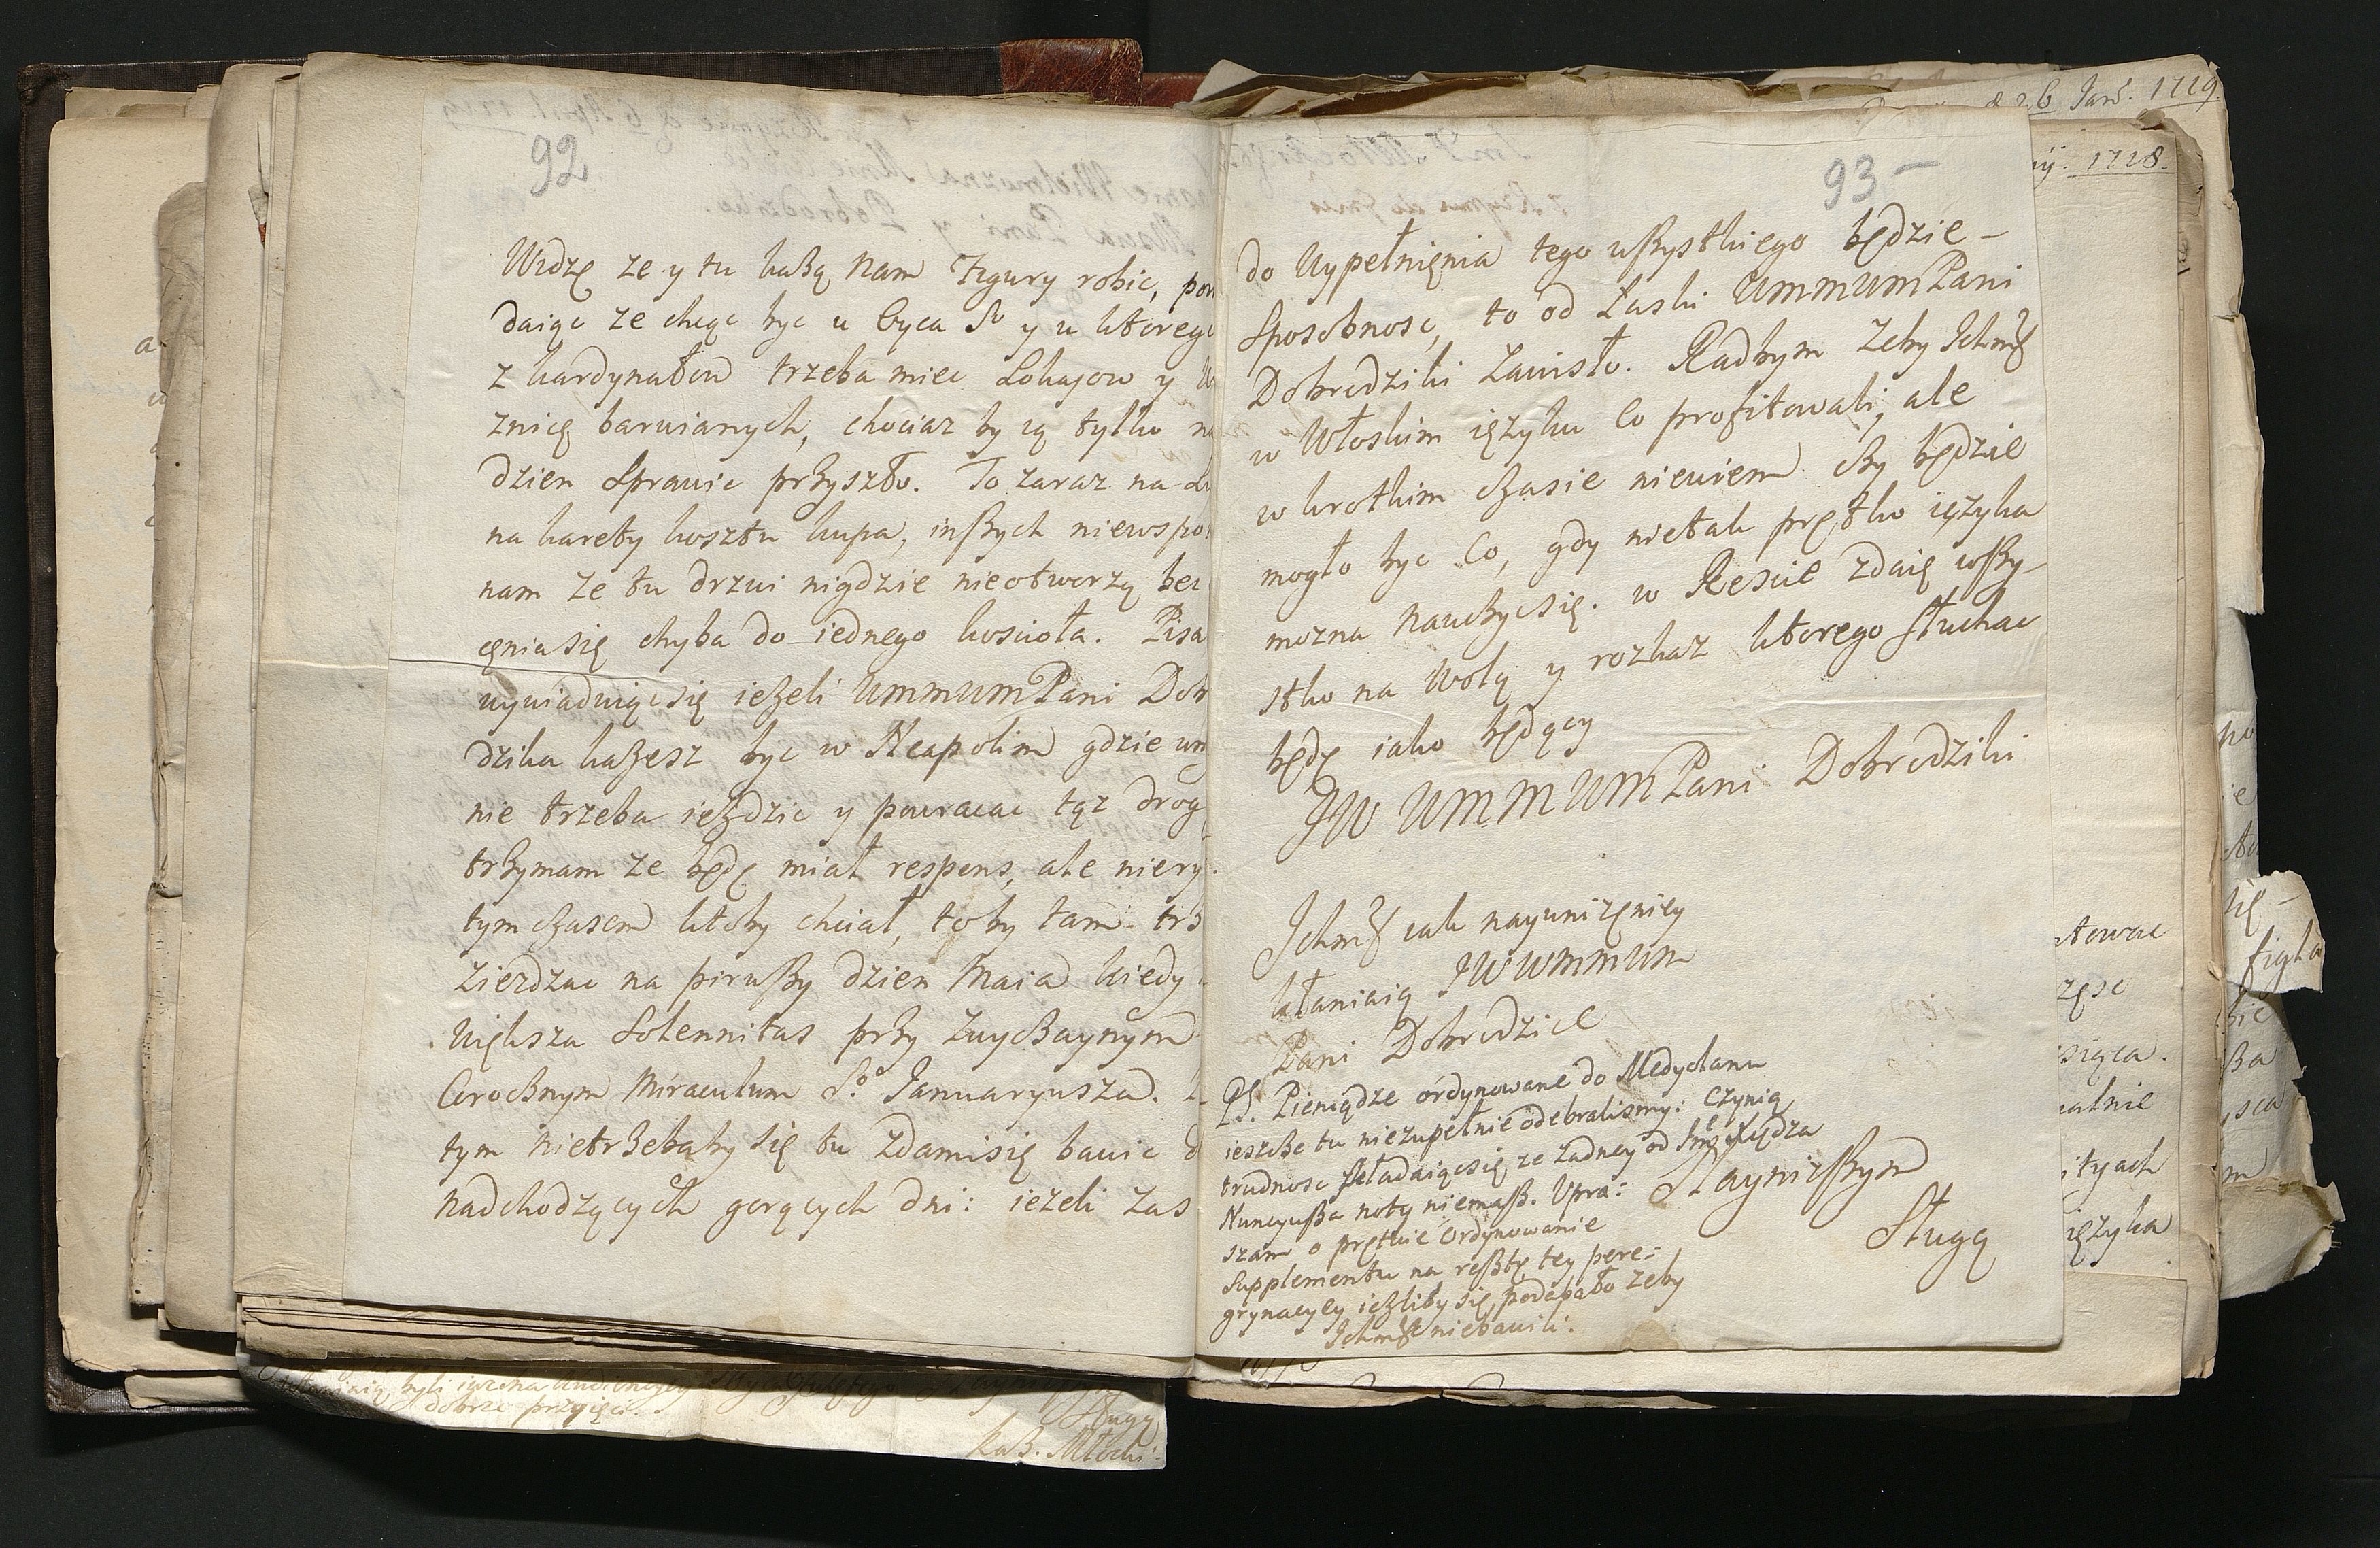 92
Widzę ze y tu każą nam Figury robic, pow
daiąc ze chcąc byc u Oyca Sº y u ktorego
z kardynałow trzeba miec Lokajow y
znicę barwianych, chociaz by ią tylko na
dzien Sprawic przyszło. To zaraz na
na karety kosztu kupa, inszych niewspo
nam Ze tu drzwi nigdzie nieotworzą bez
ęnia się chyba do iednego koscioła. Pisa
wywiaduiąc się ieżeli UmmumPani Dob
dzika każesz byc w Neapolim gdzie um
nie trzeba ieździc y powracac tąz drog
trzymam ze będę miał respons, ale niery
tym czasem ktoby chciał, toby tam
Zierdzac na pirwszy dzien Maia kiedy
Większa Solennitas przy Zwyczaynym
Corocznym Miraculum Sº Januaryusza.
tym nietrzebaby się tu Zdamisię bawic d
nadchodzących gorących dni: iezeli zas
93 -
do Wypełnięnia tego wszystkiego będzie -
Sposobnosc, to od Łaski UmmumPani
Dobrodziki Zawisło. Radbym Zeby Ichmś
w Włoskim ięzyku Co profitowali, ale
w krotkim czasie niewiem czy będzie
mogło byc Co, gdy nietak prętko ięzyka
mozna nauczyc się. w Rescie zdaię wszy-
stko na Wolą y rozkaz ktorego słuchac
będę iako będący
JW UMMUMPani Dobrodziki
Ichmś iak nayunizęniey
kłaniaią JWWmmum
Pani Dobrodzice
PS. Pieniądze ordynowane do Medyolanu
ieszcze tu niezupełnie odebralismy: Czynią
trudnosc składaiąc się ze Zadney od Imę Xiędza
Nuncyusza noty niemasz. Upra:
szam o prętkie Ordynowanie
Supplementu na resztę tey pere:
grynacyey ieżliby się podapało Zeby
Ichmść niebawili.
Naynizszym
Sługą
26 Jan. 1719.
1718.
ntowac
siąca.
ityach
ięzyka
dobrze przyięci.
Sługą
Kaz. Młocki